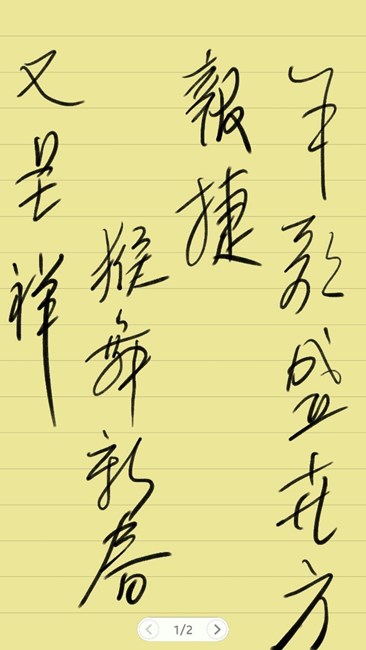 羊歌盛世方
報捷
猴舞新春
又呈祥
1/2